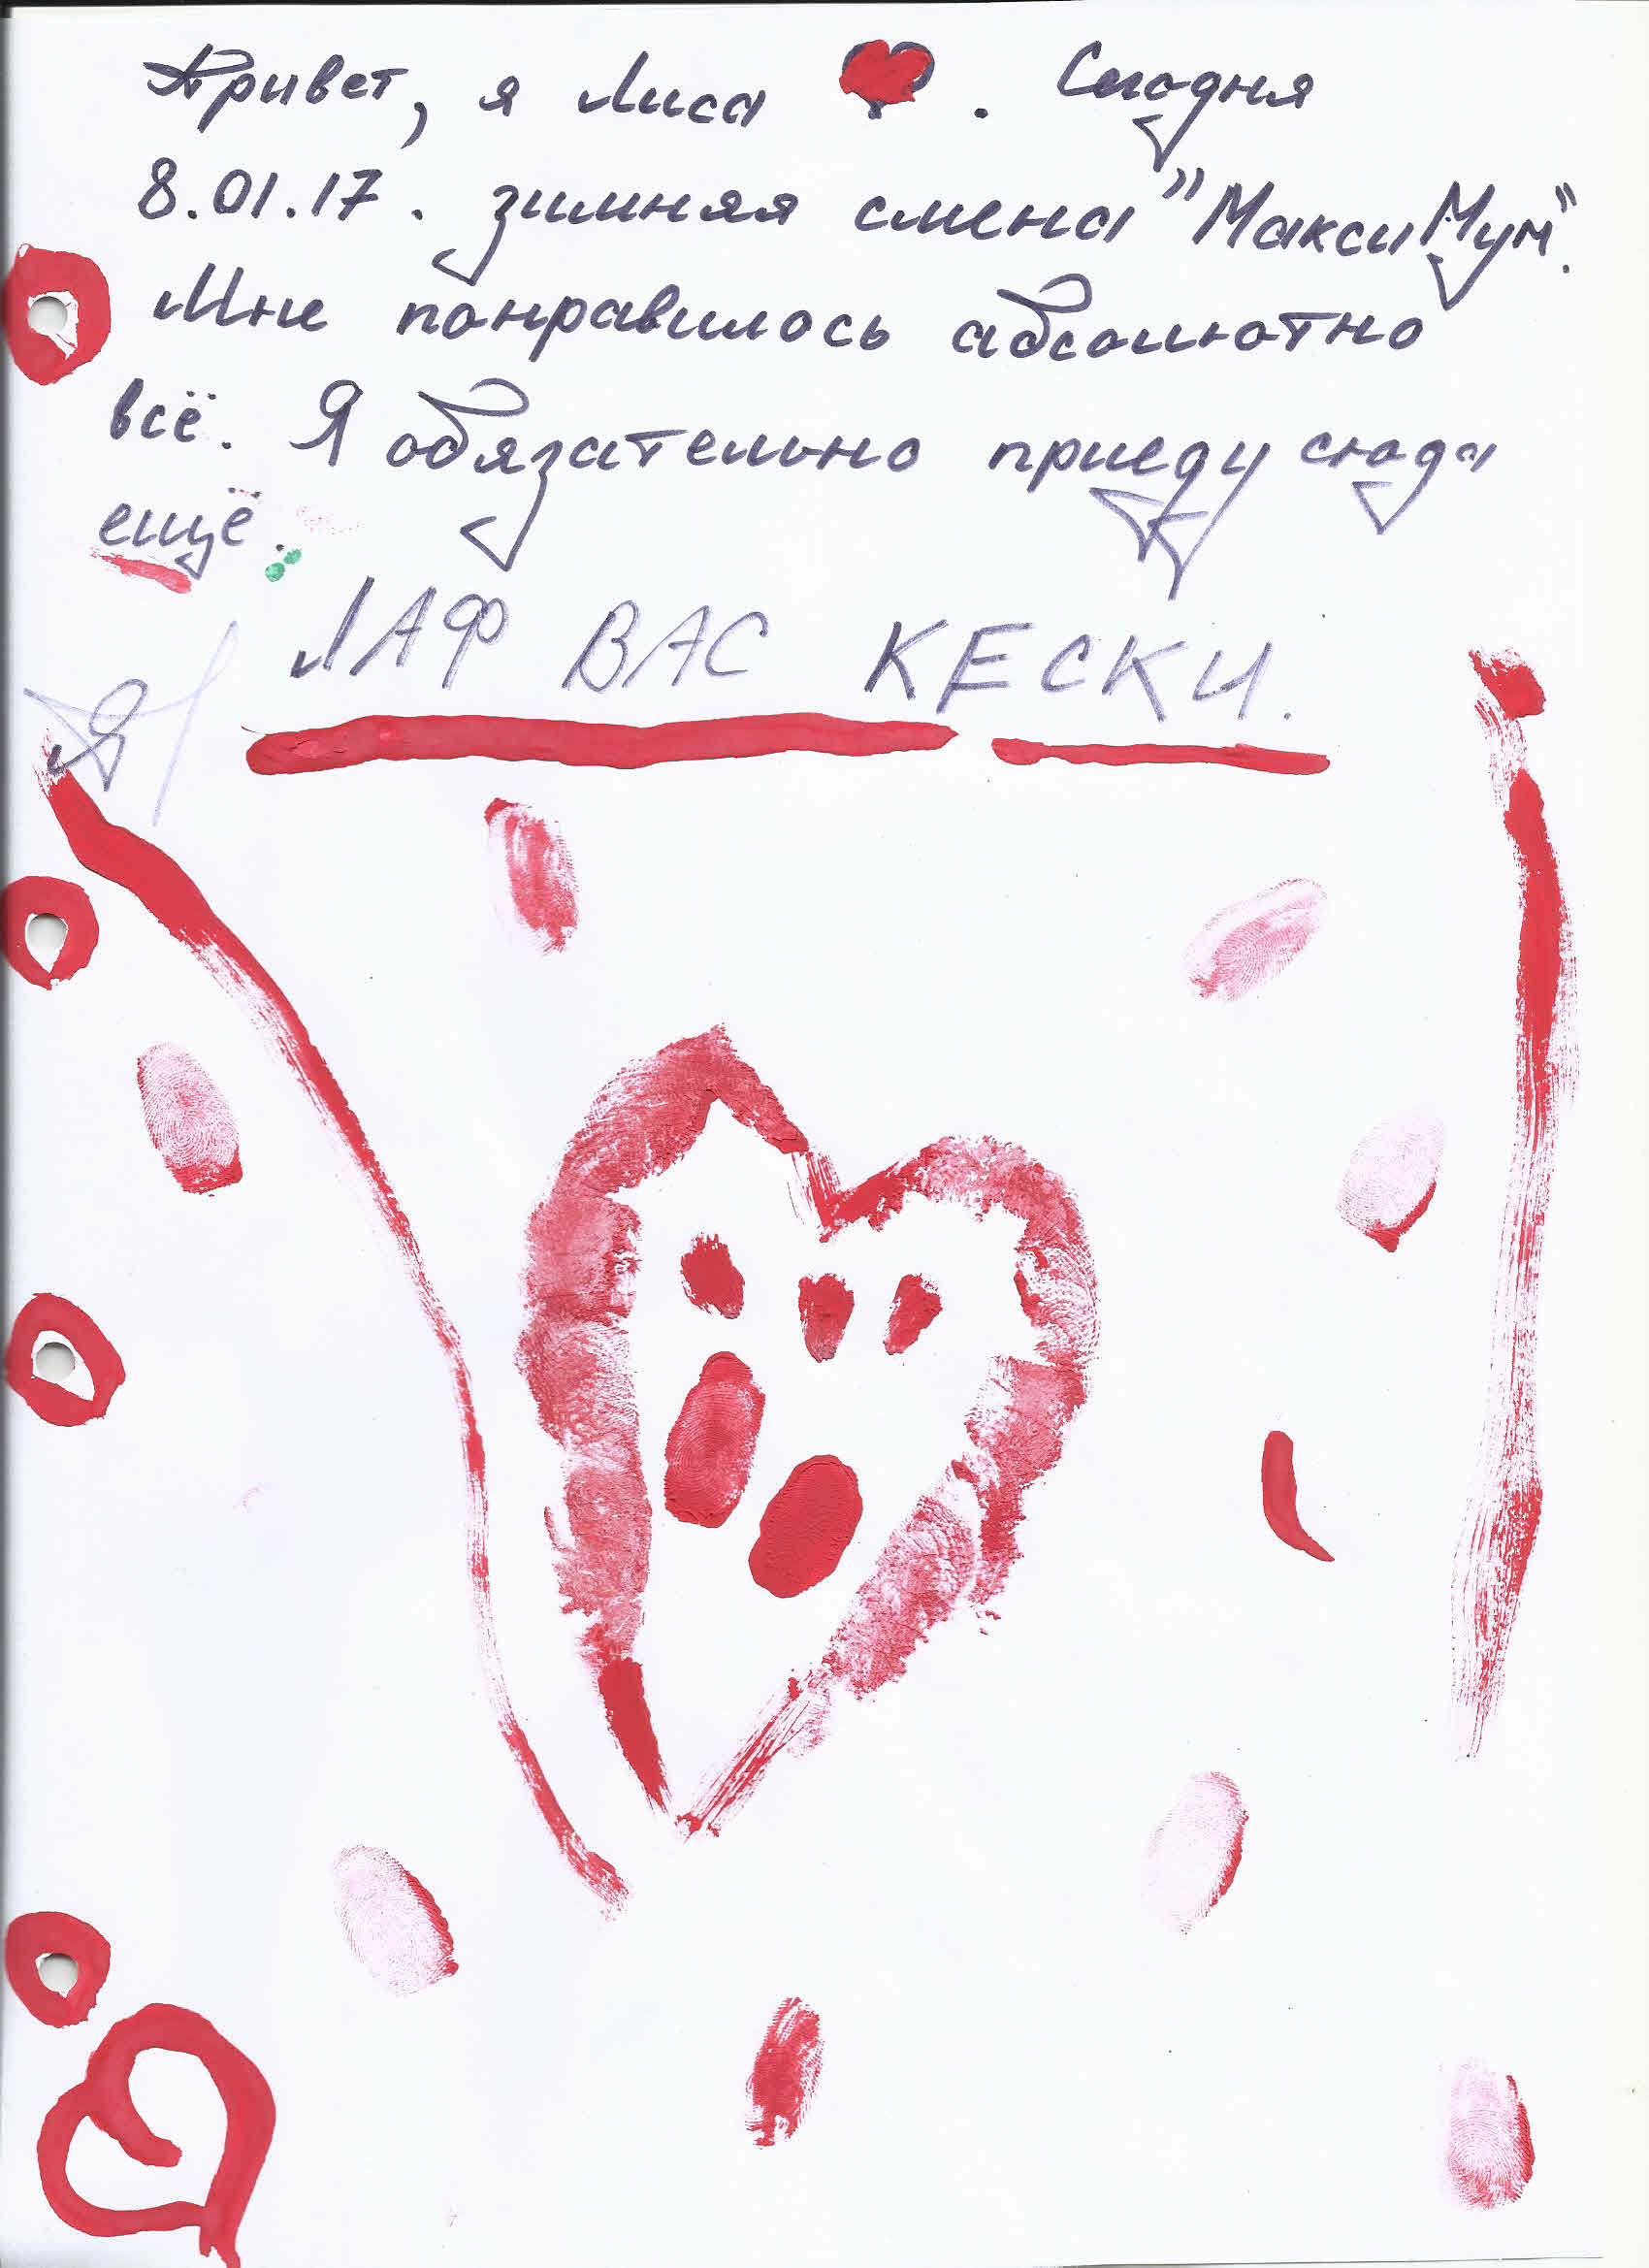 Привет, я Лиса. Сегодня
8.01.17. зимняя смена "МаксиМум".
Мне понравилось абсолютно
всё. Я обязательно приеду сюда
ещё.
ЛАФ ВАС КЕСКИ.
Я